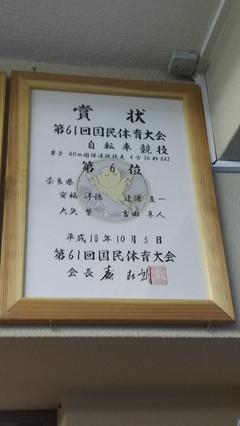 賞状
第61回国民体育大会
自転車競技
男子 4Km団体追抜競走 4分36秒842
第6位
奈良県
安福洋徳 辻浦圭一
大矢繁 吉田隼人
平成18年10月5日
第61回国民体育大会
会長